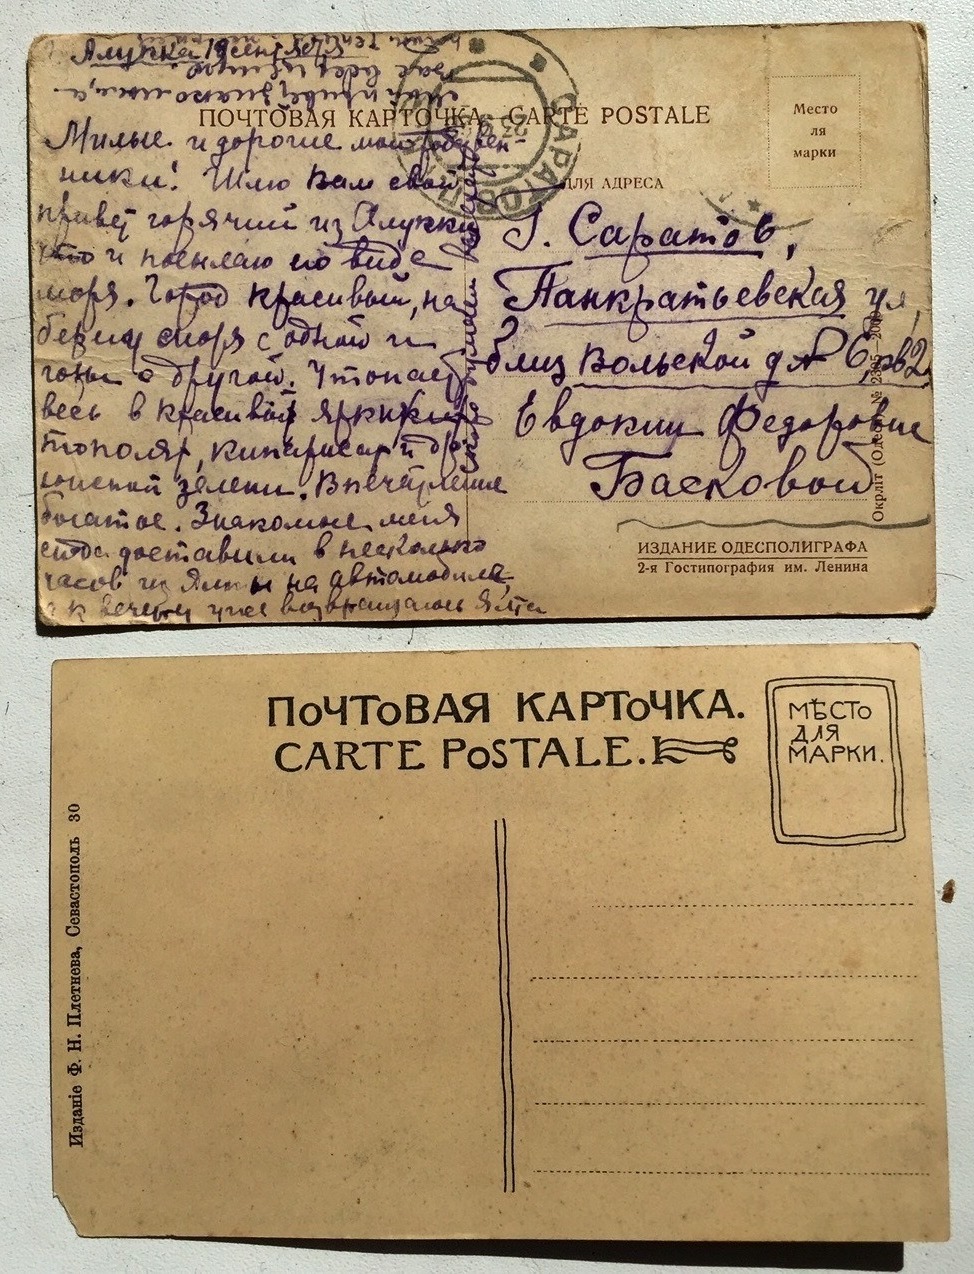 Алупка 19 сентября
ПОЧТОВАЯ КАРТОЧКА. CARTE POSTALE
Место
ля
марки
САРАТОВ
ДЛЯ АДРЕСА
Милые и дорогие мои
ники! Шлю Вам свой
привет горячий из Алупки
что и посылаю его виде
моря. Город красивый, на
берегу моря с одной и
горы с другой. Утопает
весь в красивой
тополяр, кипарисар и
зелени. Впечатление
богатое. Знакомые меня
сюда доставили в несколько
часов из Ялты на автомобиле,
а к вечеру уже возвращаюсь Ялта
Г. Саратов,
Панкратьевская ул,
близ Вольской д № 6, кв 2.
Евдокии Федоровне
Басковой
ИЗДАНИЕ ОДЕСПОЛИГРАФА
2-я Гостипография им. Ленина
ПОЧТОВАЯ КАРТОЧКА.
CARTE POSTALE.
МѢСТО
ДЛЯ
МАРКИ.
Изданіе Ф. Н. Плетнева, Севастополь 30